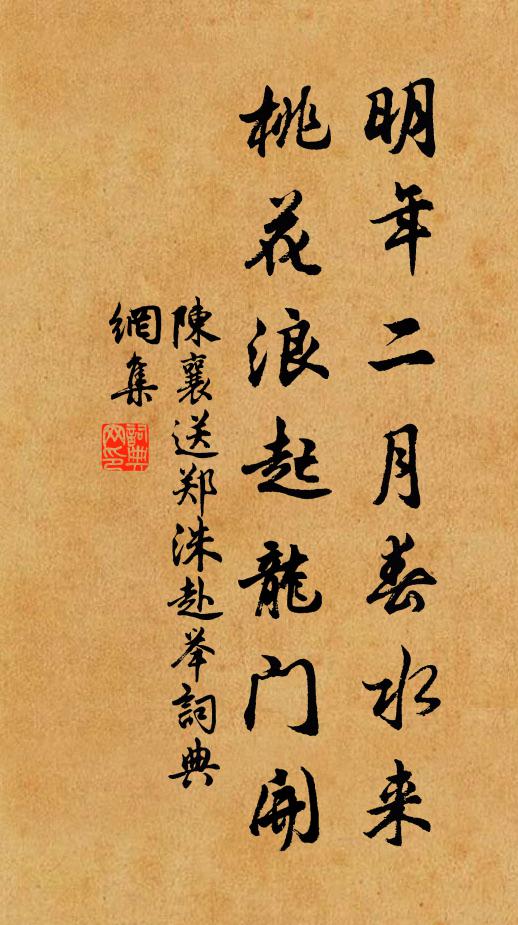 明年二月春水来
桃花浪起龍门開
陳襄送郑洙赴举詞典
網集
詞典
网印